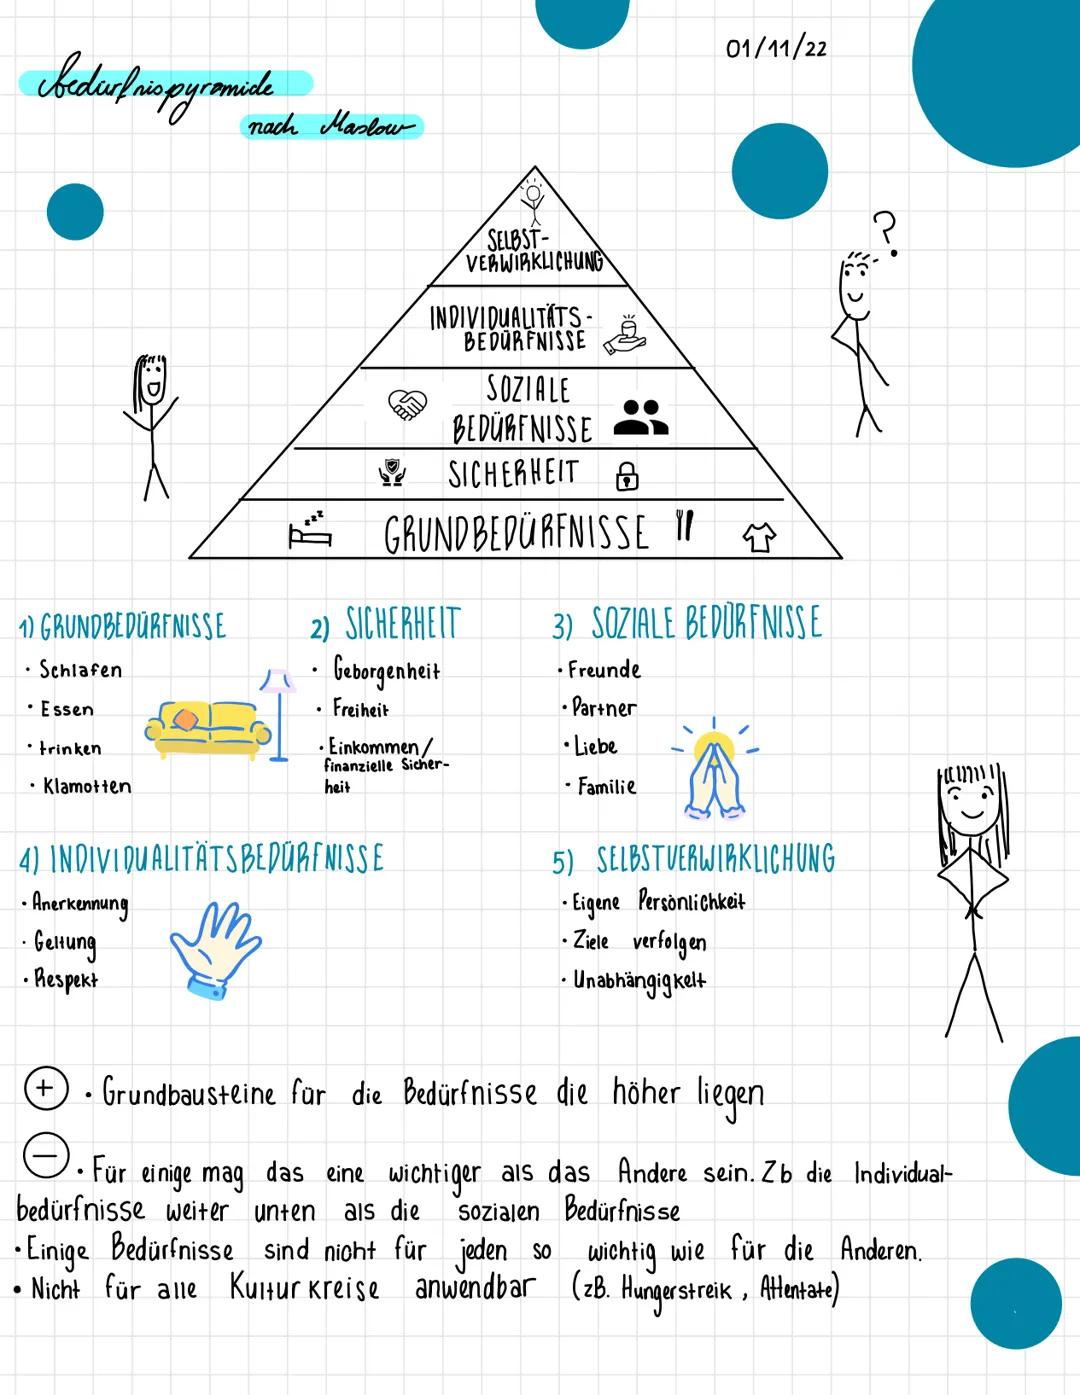 01/11/22
Bedürfnispyramide
nach Maslow
?
SELBST-
VERWIRKLICHUNG
INDIVIDUALITÄTS-
BEDÜRFNISSE
SOZIALE
BEDÜRFNISSE
SICHERHEIT
zzz
GRUNDBEDÜRFNISSE
1) GRUNDBEDÜRFNISSE
· Schlafen
· Essen
· trinken
· Klamotten
2) SICHERHEIT
· Geborgenheit
· Freiheit
· Einkommen/
finanzielle Sicher-
heit
3) SOZIALE BEDÜRFNISSE
· Freunde
· Partner
· Liebe
· Familie
4) INDIVIDUALITÄTSBEDÜRFNISSE
· Anerkennung
· Geltung
· Respekt
5) SELBSTVERWIRKLICHUNG
· Eigene Persönlichkeit
· Ziele verfolgen
· Unabhängigkeit
+ · Grundbausteine für die Bedürfnisse die höher liegen
− · Für einige mag das eine wichtiger als das Andere sein. Zb die Individual-
bedürfnisse weiter unten als die sozialen Bedürfnisse
· Einige Bedürfnisse sind nicht für jeden so wichtig wie für die Anderen.
· Nicht für alle Kulturkreise anwendbar (zB. Hungerstreik, Attentate)